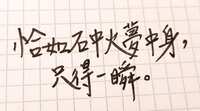 恰如石中火夢中身,
只得一瞬。